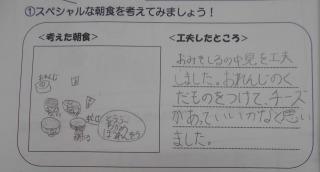 ①スペシャルな朝食を考えてみましょう！
＜考えた朝食＞
＜工夫したところ＞
おみそしるの中見を工夫
しました。おれんじのく
だものをつけて、チーズ
があっていいかなと思い
ました。
とうふ
わかめ